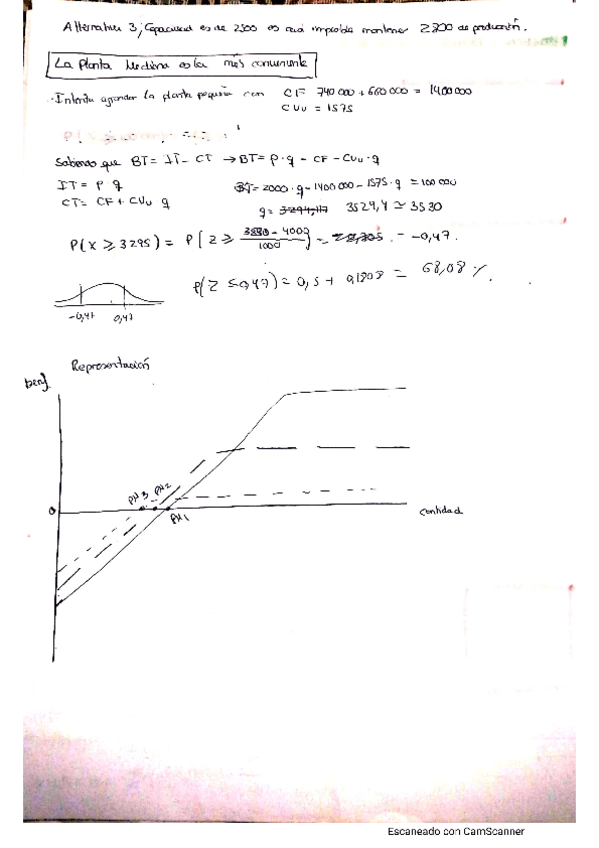 Alternativa 3; Capacidad es de 2500 es casi imposible mantener 2800 de producción.
La planta Mediana es la más conveniente
- Intenta agrandar la planta pequeña con CF 740 000 + 660 000 = 1400 000
CVu = 1575
Sabiendo que BT = IT - CT → BT = p · q - CF - CVu · q
IT = P q
CT = CF + CVu q
BT = 2000 · q - 1400 000 - 1575 · q = 100 000
q = 3294,117 3529,4 ≃ 3530
P(X ≥ 3295) = P[Z ≥ 3530 - 4000 / 1000] = = -0,47.
P(Z ≤ 0,47) = 0,5 + 0,1808 = 68,08 %.
-0,47 0,47
Representación
benf
PN3 PN2
0
PN1
cantidad
Escaneado con CamScanner